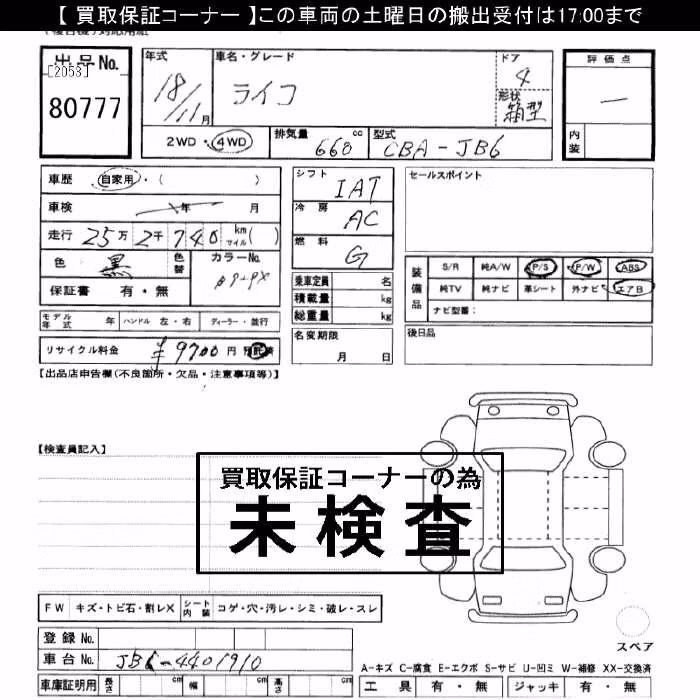 【 買取保証コーナー 】この車両の土曜日の搬出受付は17:00まで
出品No.
[2053]
80777
年式
18/11月
車名・グレード
ライコ
ドア
4
形状
箱型
評価点
一
内装
2WD・4WD
排気量
660
cc
型式
CBA-JB6
車歴
自家用・( )
車検
年 月
走行
25万2千740
km
マイル
( )
色
黒
色替
カラーNo.
保証書 有・無
モデル年式 年
ハンドル 左・右
ディーラー・並行
リサイクル料金
¥9700円 預託済
シフト
IAT
冷房
AC
燃料
G
乗車定員 名
積載量 kg
総重量 kg
名変期限
月 日
セールスポイント
装備品
S/R
純A/W
P/S
P/W
ABS
純TV
純ナビ
革シート
外ナビ
エアB
ナビ型番:
後日品
【出品店申告欄(不良箇所・欠品・注意事項等)】
【検査員記入】
買取保証コーナーの為
未検査
FW
キズ・トビ石・割レX
シート内装
コゲ・穴・汚レ・シミ・破レ・スレ
登録No.
車台No.
JB6-4401910
車庫証明用
長さ
cm
幅
cm
高さ
cm
スペア
A-キズ C-腐食 E-エクボ S-サビ U-凹ミ W-補修 XX-交換済
工具 有・無
ジャッキ 有・無